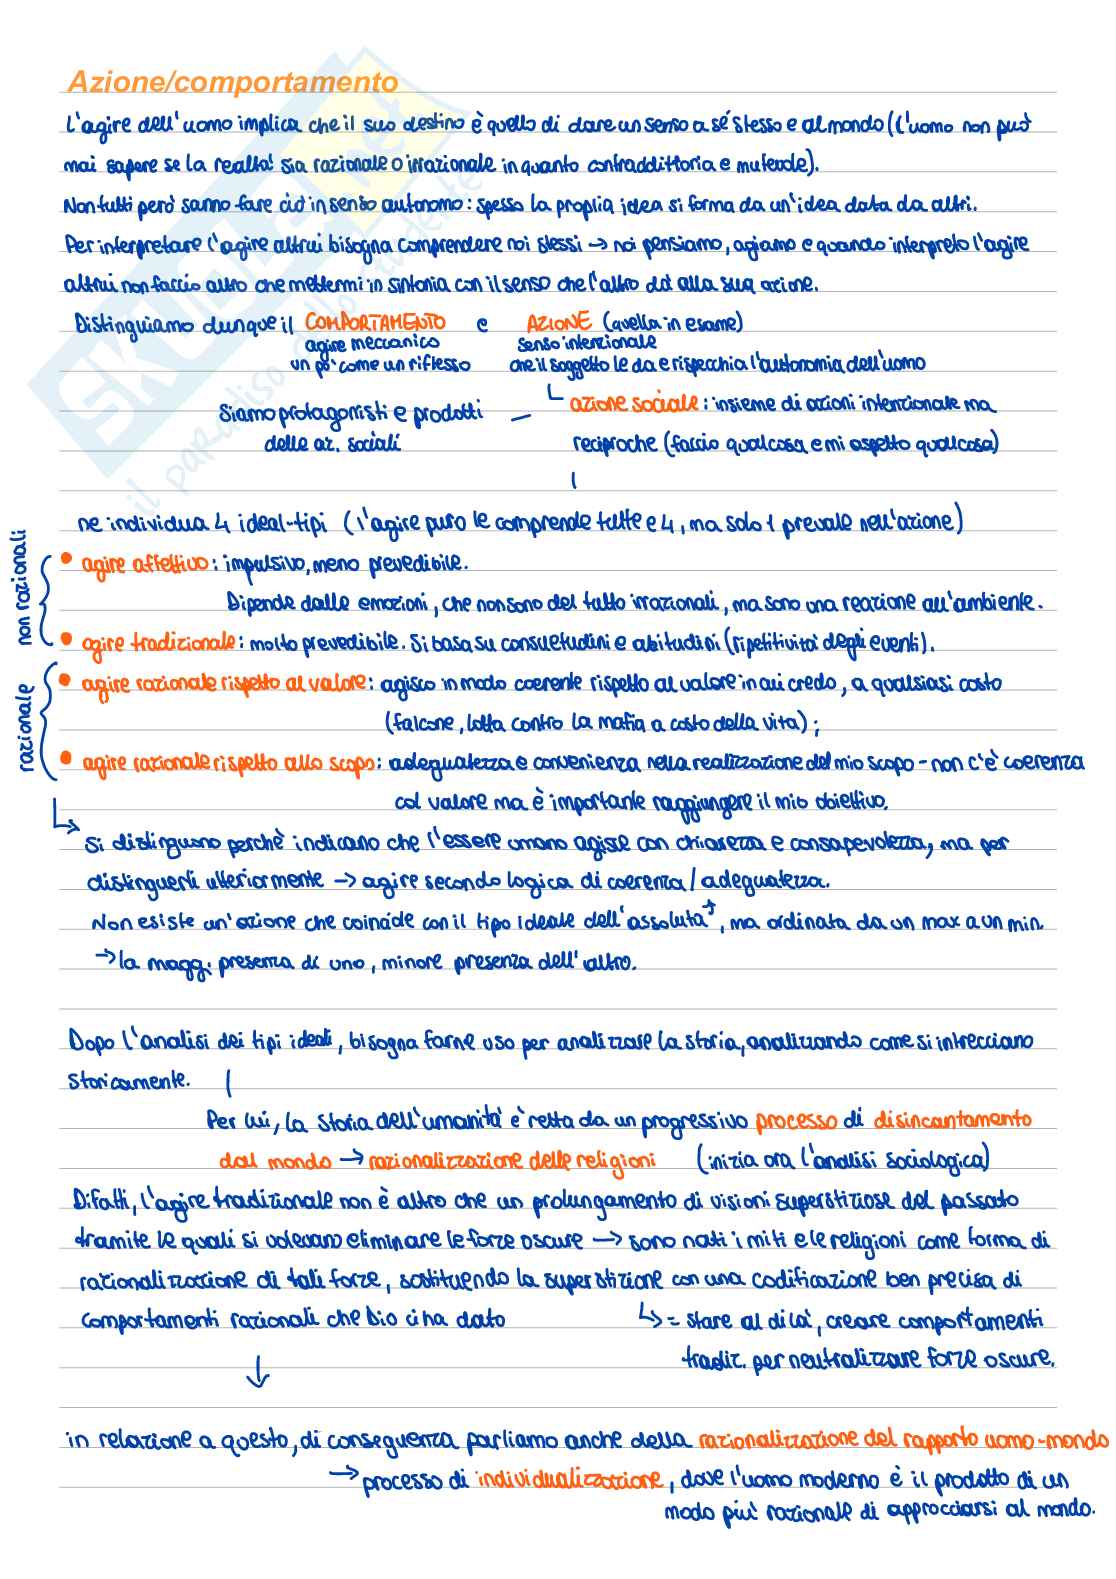 Azione/comportamento
L'agire dell'uomo implica che il suo destino è quello di dare un senso a sé stesso e al mondo (l'uomo non può
mai sapere se la realtà sia razionale o irrazionale in quanto contraddittoria e mutevole).
Non tutti però sanno fare ciò in senso autonomo: spesso la proplia idea si forma da un'idea data da altri.
Per interpretare l'agire altrui bisogna comprendere noi stessi → noi pensiamo, agiamo e quando interpreto l'agire
altrui non faccio altro che mettermi in sintonia con il senso che l'altro dà alla sua azione.
Distinguiamo dunque il COMPORTAMENTO e AZIONE (quella in esame)
agire meccanico senso intenzionale
un po' come un riflesso che il soggetto le da e rispecchia l'autonomia dell'uomo
azione sociale: insieme di azioni intenzionale ma
Siamo protagonisti e prodotti —
delle az. sociali reciproche (faccio qualcosa e mi aspetto qualcosa)
ne individua 4 ideal-tipi (l'agire puro le comprende tutte e 4, ma solo 1 prevale nell'azione)
non razionali
• agire affettivo: impulsivo, meno prevedibile.
Dipende dalle emozioni, che non sono del tutto irrazionali, ma sono una reazione all'ambiente.
• agire tradizionale: molto prevedibile. Si basa su consuetudini e abitudini (ripetitività degli eventi).
razionale
• agire razionale rispetto al valore: agisco in modo coerente rispetto al valore in cui credo, a qualsiasi costo
(falcone, lotta contro la mafia a costo della vita);
• agire razionale rispetto allo scopo: adeguatezza e convenienza nella realizzazione del mio scopo - non c'è coerenza
col valore ma è importante raggiungere il mio obiettivo.
↳ Si distinguono perchè indicano che l'essere umano agisce con chiarezza e consapevolezza, ma per
distinguerli ulteriormente → agire secondo logica di coerenza/adeguatezza.
Non esiste un'azione che coincide con il tipo ideale dell'assoluta, ma ordinata da un max a un min.
→ la magg. presenza di uno, minore presenza dell'altro.
Dopo l'analisi dei tipi ideali, bisogna farne uso per analizzare la storia, analizzando come si intrecciano
storicamente.
Per lui, la storia dell'umanità è retta da un progressivo processo di disincantamento
dal mondo → razionalizzazione delle religioni (inizia ora l'analisi sociologica)
Difatti, l'agire tradizionale non è altro che un prolungamento di visioni superstiziose del passato
tramite le quali si volevano eliminare le forze oscure → sono nati i miti e le religioni come forma di
razionalizzazione di tali forze, sostituendo la superstizione con una codificazione ben precisa di
comportamenti razionali che Dio ci ha dato ↳ = stare al di là, creare comportamenti
tradiz. per neutralizzare forze oscure.
in relazione a questo, di conseguenza parliamo anche della razionalizzazione del rapporto uomo-mondo
→ processo di individualizzazione, dove l'uomo moderno è il prodotto di un
modo più razionale di approcciarsi al mondo.